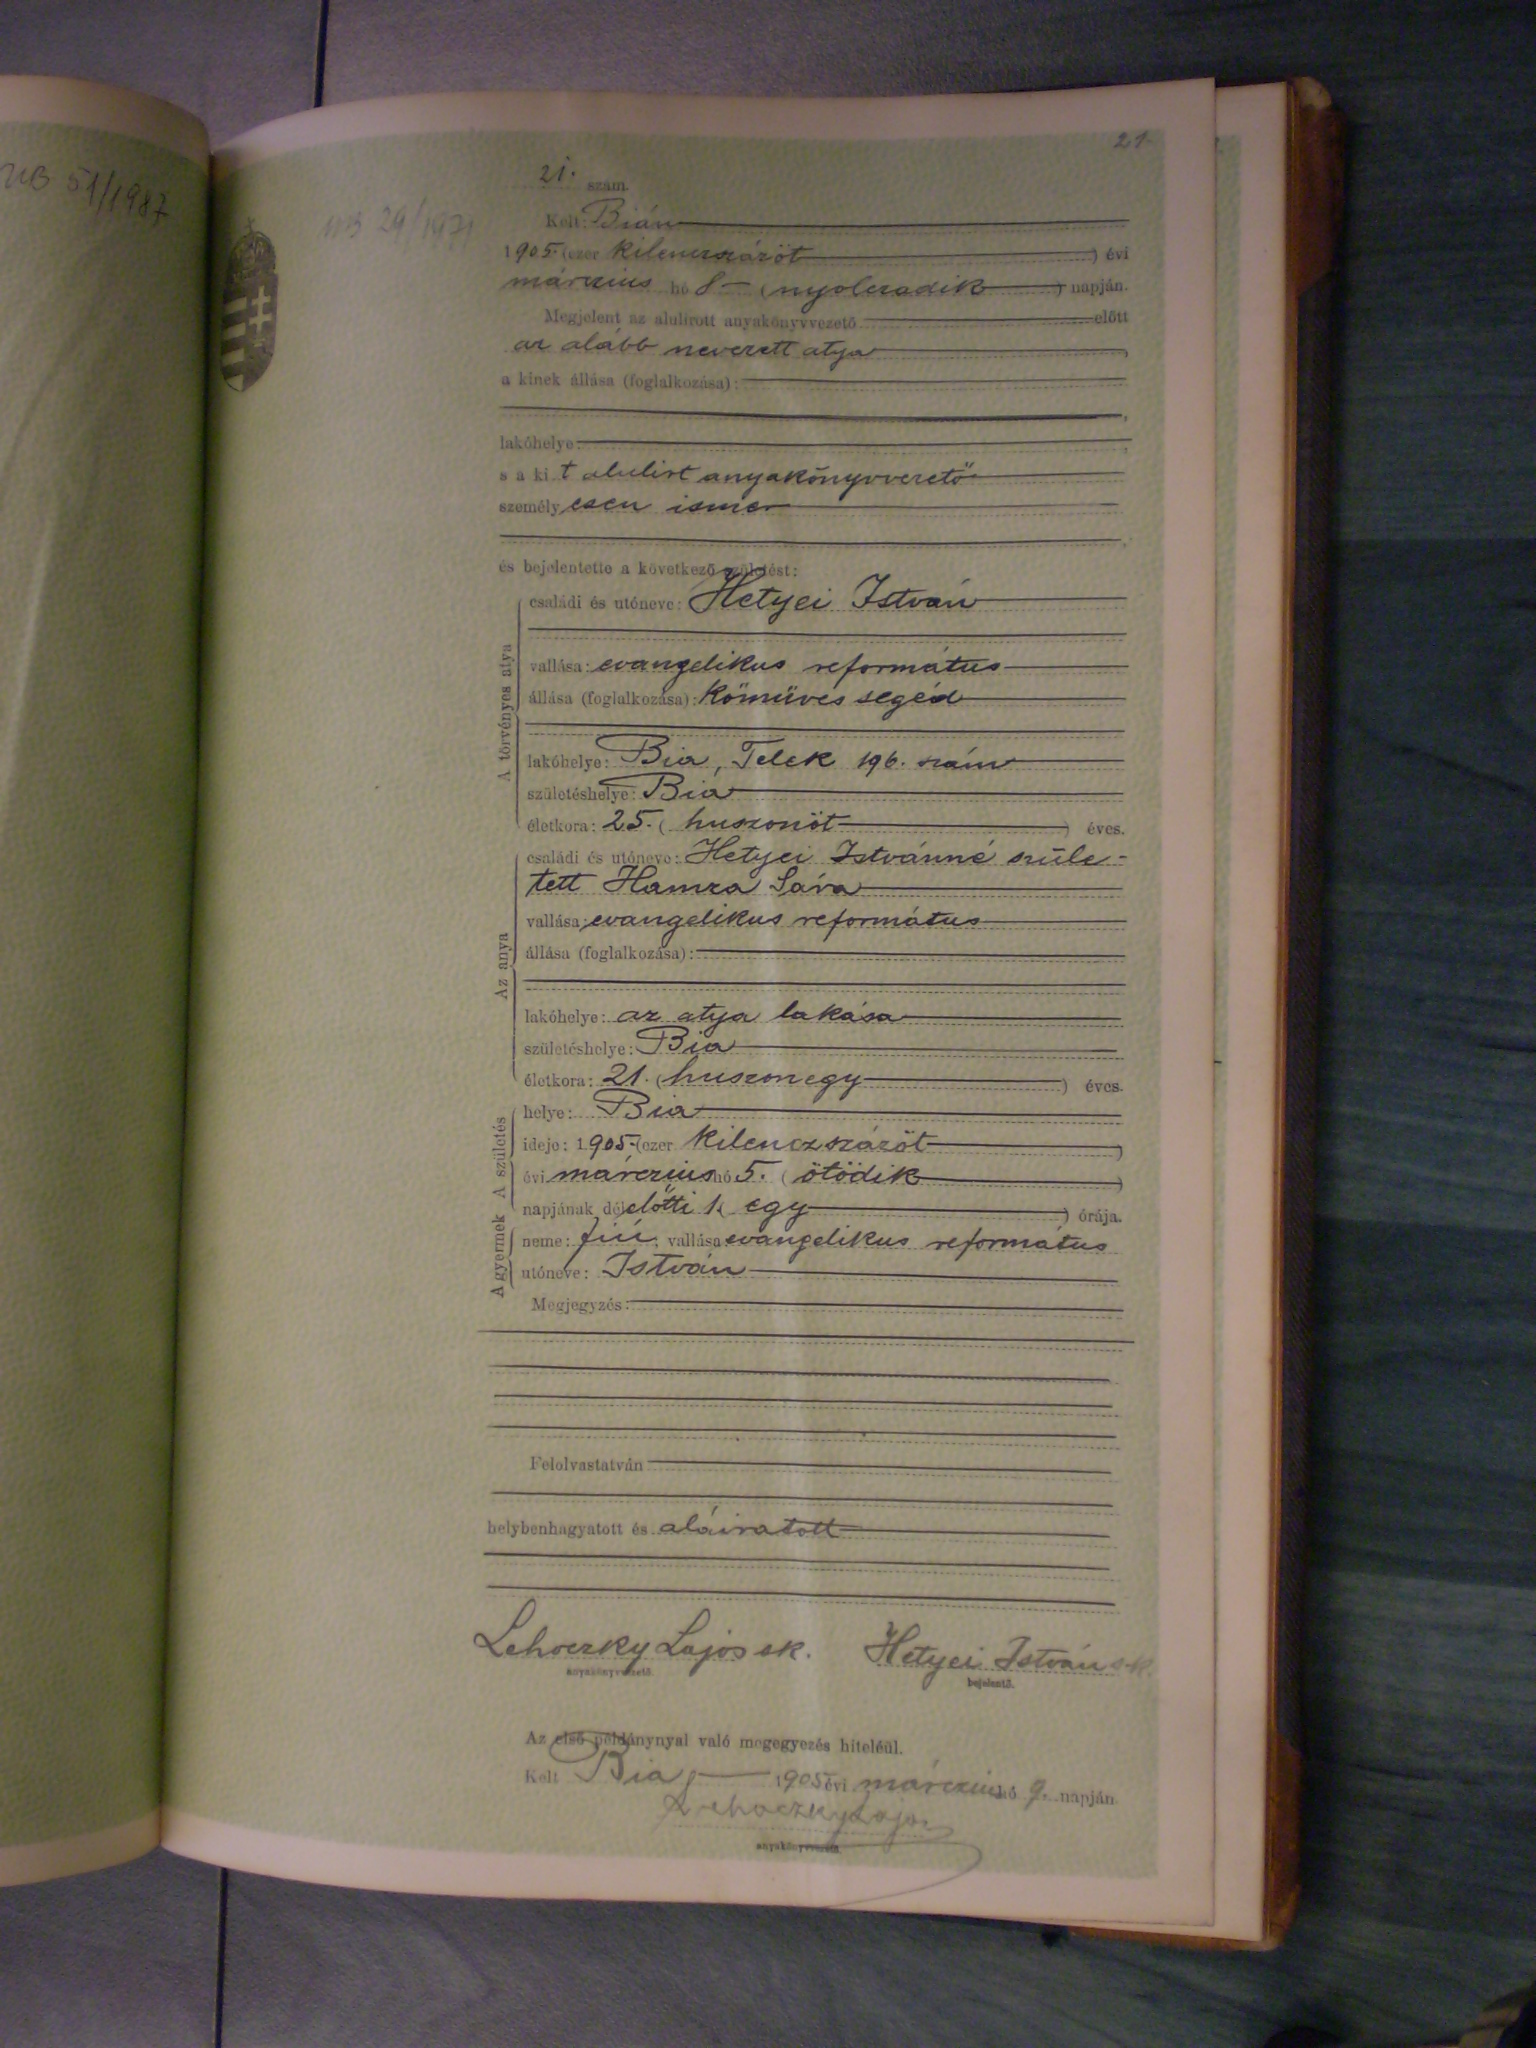 UB 51/1987
UB 29/1971
21.
21. szám.
Kelt: Bián
1905. (ezer kilenczszázöt ) évi
márczius hó 8 ( nyolczadik ) napján.
Megjelent az alulirott anyakönyvvezető előtt
az alább nevezett atya ,
a kinek állása (foglalkozása):
lakóhelye:
s a ki t alulirt anyakönyvvezető
személy esen ismer
és bejelentette a következő születést:
A törvényes atya
családi és utóneve: Hetyei István
vallása: evangelikus református
állása (foglalkozása): Kőműves segéd
lakóhelye: Bia, Telek 196. szám
születéshelye: Bia
életkora: 25. ( huszonöt ) éves.
Az anya
családi és utóneve: Hetyei Istvánné szüle-
tett Hamza Sára
vallása: evangelikus református
állása (foglalkozása):
lakóhelye: az atya lakása
születéshelye: Bia
életkora: 21. ( huszonegy ) éves.
A születés
helye: Bia
ideje: 1905. (ezer kilenczszázöt )
évi márczius hó 5. ( ötödik )
napjának dél előtti 1 ( egy ) órája.
A gyermek
neme: fiú, vallása: evangelikus református
utóneve: István
Megjegyzés:
Felolvastatván
helybenhagyatott és aláiratott
Lehoczky Lajos sk. Hetyei István s.k.
anyakönyvvezető. bejelentő.
Az első példánynyal való megegyezés hiteléül.
Kelt Bia, 1905 évi márczius hó 9. napján
Lehoczky Lajos
anyakönyvvezető.